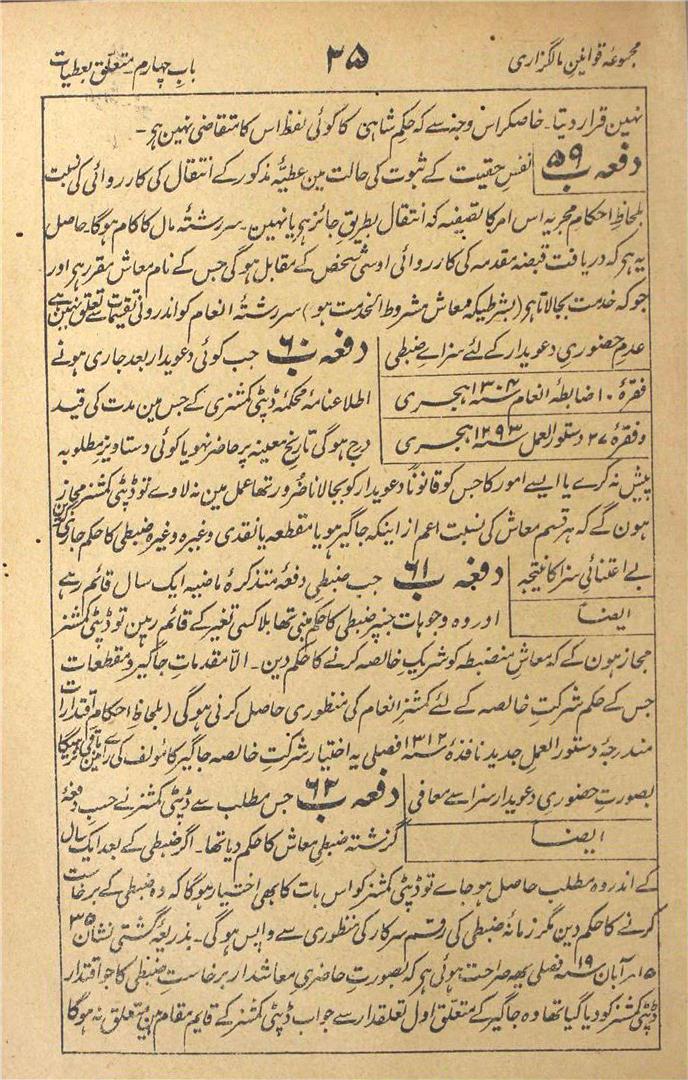 مجموعۂ قوانین مالگزاری
۳۵
باب چہارم - متعلق بعطیات
نہین قرار دیتا - خاصکر اس وجہ سے کہ حکم شاہی کا کوئی لفظ اس کا متقاضی نہین ہی -
دفعہ ۵۹ ب نفسِ حقیت کے ثبوت کی حالت مین عطیۂ مذکور کے انتقال کی کارروائی کی نسبت
بلحاظ احکام مجریہ اس امر کا تصفیہ کہ انتقال بطریق جائز ہی یا نہین - سررشتۂ مال کا کام ہوگا - حاصل
یہ ہی کہ دریافت قبضہ مقدمہ کی کارروائی اوسی شخص کے مقابل ہوگی جس کے نام معاش مقرر ہی اور
جو کہ خدمت بجا لاتا ہی (بشرطیکہ معاش مشروط الخدمت ہو) سررشتۂ انعام کو اندرونی تقیمات سے تعلق نہین ہے
عدم حضوری دعویدار کے لئے سزاے ضبطی
فقرۂ ۱۰ ضابطۂ انعام ۱۳۰۴ سنہ ہجری
و فقرۂ ۲۷ دستور العمل ۱۲۹۳ سنہ ہجری
دفعہ ۶۰ ب جب کوئی دعویدار بعد جاری ہونے
اطلاعنامۂ محکمۂ ڈپٹی کمشنری کے جس مین مدت کی قید
درج ہوگی تاریخ معینہ پر حاضر نہو یا کوئی دستاویز مطلوبہ
پیش نہ کرے یا ایسے امور کا جس کو قانوناً دعویدار کو بجا لانا ضرور تھا عمل مین نہ لاوے تو ڈپٹی کمشنر مجاز
ہون گے کہ ہر قسم معاش کی نسبت اعم از اینکہ جاگیر ہو یا مقطعہ یا نقدی وغیرہ وغیرہ ضبطی کا حکم جاری
بے اعتنائی سزا کا نتیجہ
ایضاً
دفعہ ۶۱ ب جب ضبطی دفعۂ متذکرۂ ماضیہ ایک سال قائم رہے
اور وہ وجوہات جنپر ضبطی کا حکم مبنی تھا بلا کسی تغیر کے قائم رہین تو ڈپٹی کمشنر
مجاز ہون گے کہ معاش منضبطہ کو شریک خالصہ کرنے کا حکم دین - الّا مقدمات جاگیر و مقطعات
جس کے حکم شرکت خالصہ کے لئے کمشنر انعام کی منظوری حاصل کرنی ہوگی (بلحاظ احکام اقتدارات
مندرجۂ دستور العمل جدید نافذۂ ۱۳۱۲ سنہ فصلی یہ اختیار شرکت خالصہ جاگیر کا مولف کی راے مین باقی نہین رہیگا
بصورت حضوری دعویدار سزا سے معافی
ایضاً
دفعہ ۶۲ ب جس مطلب سے ڈپٹی کمشنر نے حسب دفعۂ
گزشتہ ضبطی معاش کا حکم دیا تھا - اگر ضبطی کے بعد ایک سال
کے اندر وہ مطلب حاصل ہو جاے تو ڈپٹی کمشنر کو اس بات کا بھی اختیار ہوگا کہ وہ ضبطی کے برخاست
کرنے کا حکم دین مگر زمانۂ ضبطی کی رقم سرکار کی منظوری سے واپس ہوگی - بذریعۂ گشتی نشان ۳۵
۱۵ ؍ آبان ۱۹ سنہ فصلی یہہ صراحت ہوئی ہی کہ بصورت حاضری معاشدار برخاست ضبطی کا جو اقتدار
ڈپٹی کمشنر کو دیا گیا تھا وہ جاگیر کے متعلق اول تعلقدار سے جواب ڈپٹی کمشنر کے قایم مقام ہین متعلق نہ ہوگا